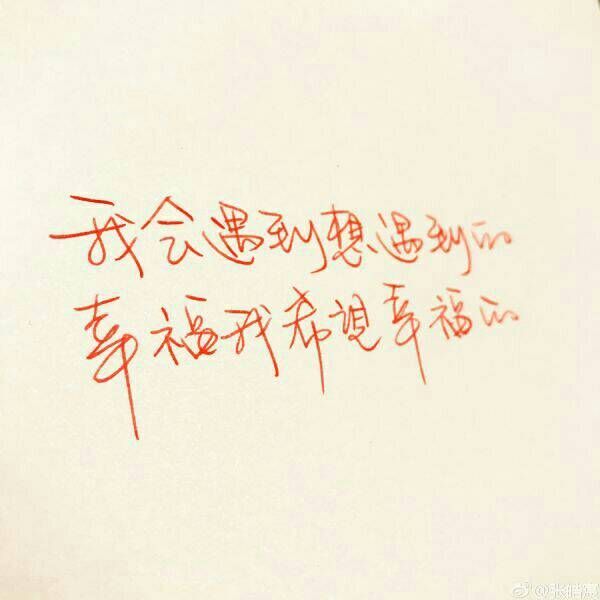 我会遇到想遇到的
幸福我希望幸福的
@张皓宸